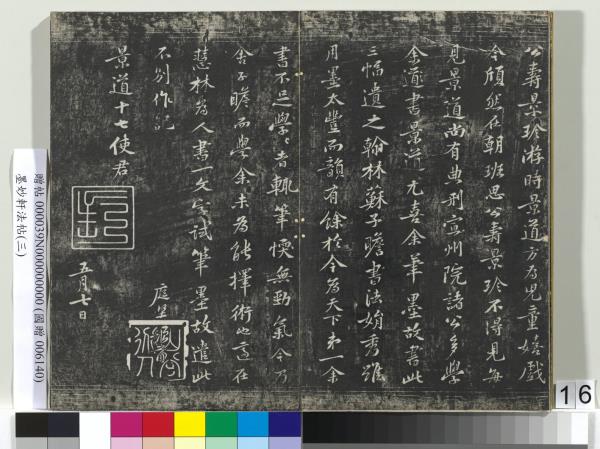 公壽景珍游時景道方為兒童嬉戲
今頎然在朝班思公壽景珍不得見每
見景道尚有典刑宣州院諸公多學
余書景道尤喜余筆墨故書此
三幅遺之翰林蘇子瞻書法娟秀雖
用墨太豐而韻有餘於今為天下第一余
書不足學學者輒筆愞無勁氣今乃
舍子瞻而學余未為能擇術也適在
慧林為人書一文字試筆墨故遣此
不別作記
景道十七使君
五月七日
庭堅
山谷
贈帖 000039N000000000 (國贈 006140)
墨妙軒法帖(三)
16